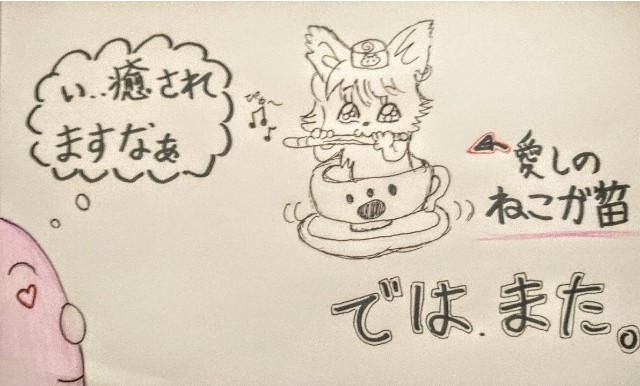 い‥癒され
ますなぁ
ぴゅ〜
愛しの
ねこが笛
では、また。